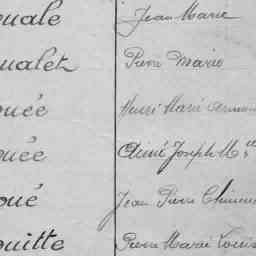 uale Jean Marie
ualez Pierre Marie
ouée Henri Marie
ouée Aimé Joseph M
oué Jean Pierre
ouitte Pierre Marie Louis